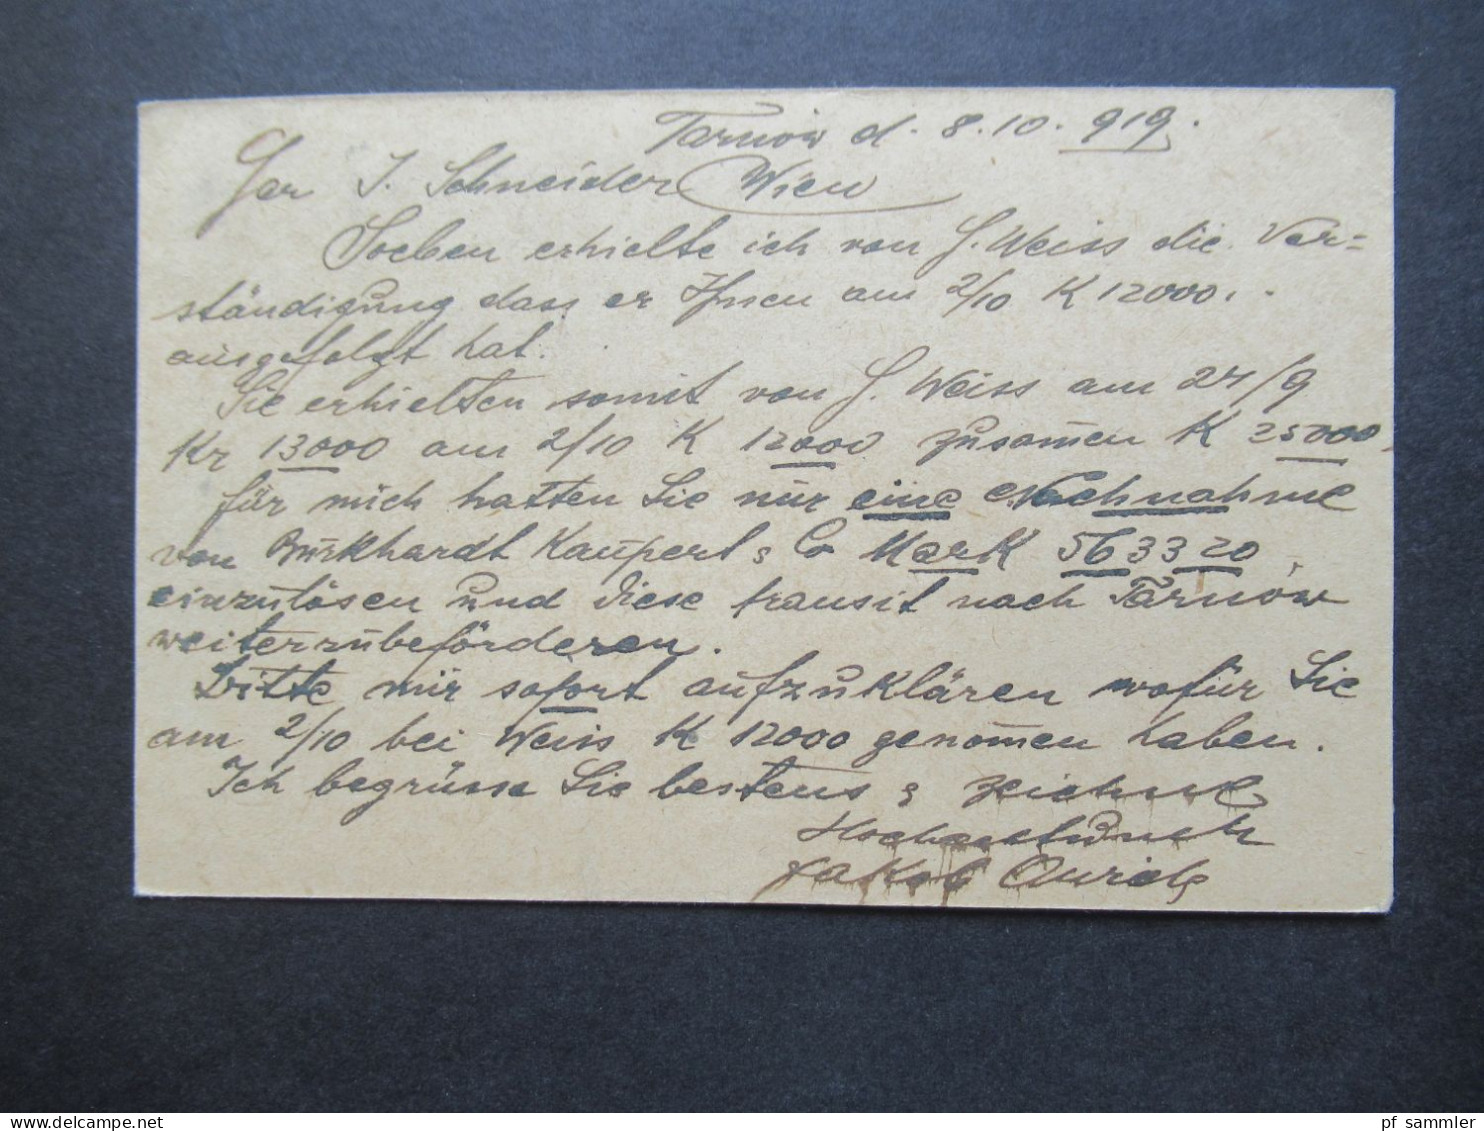 Tarnów d. 8.10. 919.
J. Schneider Wien
Soeben erhielte ich von J. Weiss die Ver=
ständigung dass er Ihnen am 2/10 K 12000.
ausgefolgt hat.
Sie erhielten somit von J. Weiss am 27/9
Kr 13000 am 2/10 K 12000 zusam̄en K 25000
für mich hatten Sie nur eine Nachnahme
von Burkhardt Kaupert & Co Mark 5633 20
einzulösen und diese transit nach Tarnów
weiterzubefördern.
Bitte mir sofort aufzuklären wofür Sie
am 2/10 bei Weiss K 12000 genom̄en haben.
Ich begrüsse Sie bestens & zeichne
Hochachtund
Jakob
delcampe.net
pf_sammler